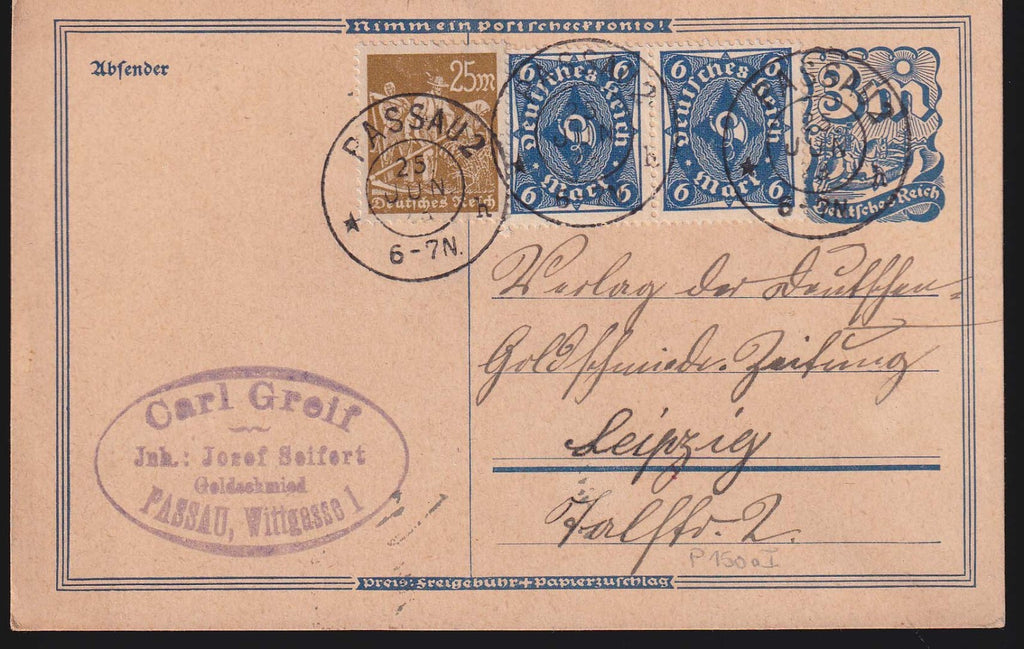 Nimm ein Postscheckkonto!
Absender
25m
Deutsches Reich
6 6
Deutsches Reich
6
Mark
6 6
6 6
Deutsches Reich
6
Mark
6 6
3 m
Deutsches Reich
PASSAU 2
25
JUN
6-7N.
h
PASSAU 2
JUN
h
PASSAU
JUN
6-7N.
h
Verlag der Deutschen
Goldschmiede-Zeitung
Leipzig
Talstr. 2.
P 150 a I
Carl Greif
Inh.: Josef Seifert
Goldschmied
PASSAU, Wittgasse 1
Preis: Freigebühr + Papierzuschlag